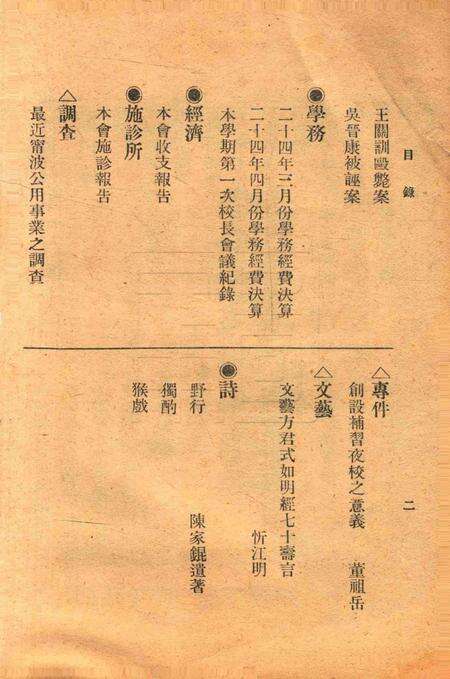 目錄
王關訓毆斃案
吳晉康被誣案
●學務
二十四年三月份學務經費決算
二十四年四月份學務經費決算
本學期第一次校長會議紀錄
●經濟
本會收支報告
●施診所
本會施診報告
△調查
最近甯波公用事業之調查
二
△專件
創設補習夜校之意義　董祖岳
△文藝
文藝方君式如明經七十壽言
忻江明
●詩
野行　陳家錕遺著
獨酌
猴戲